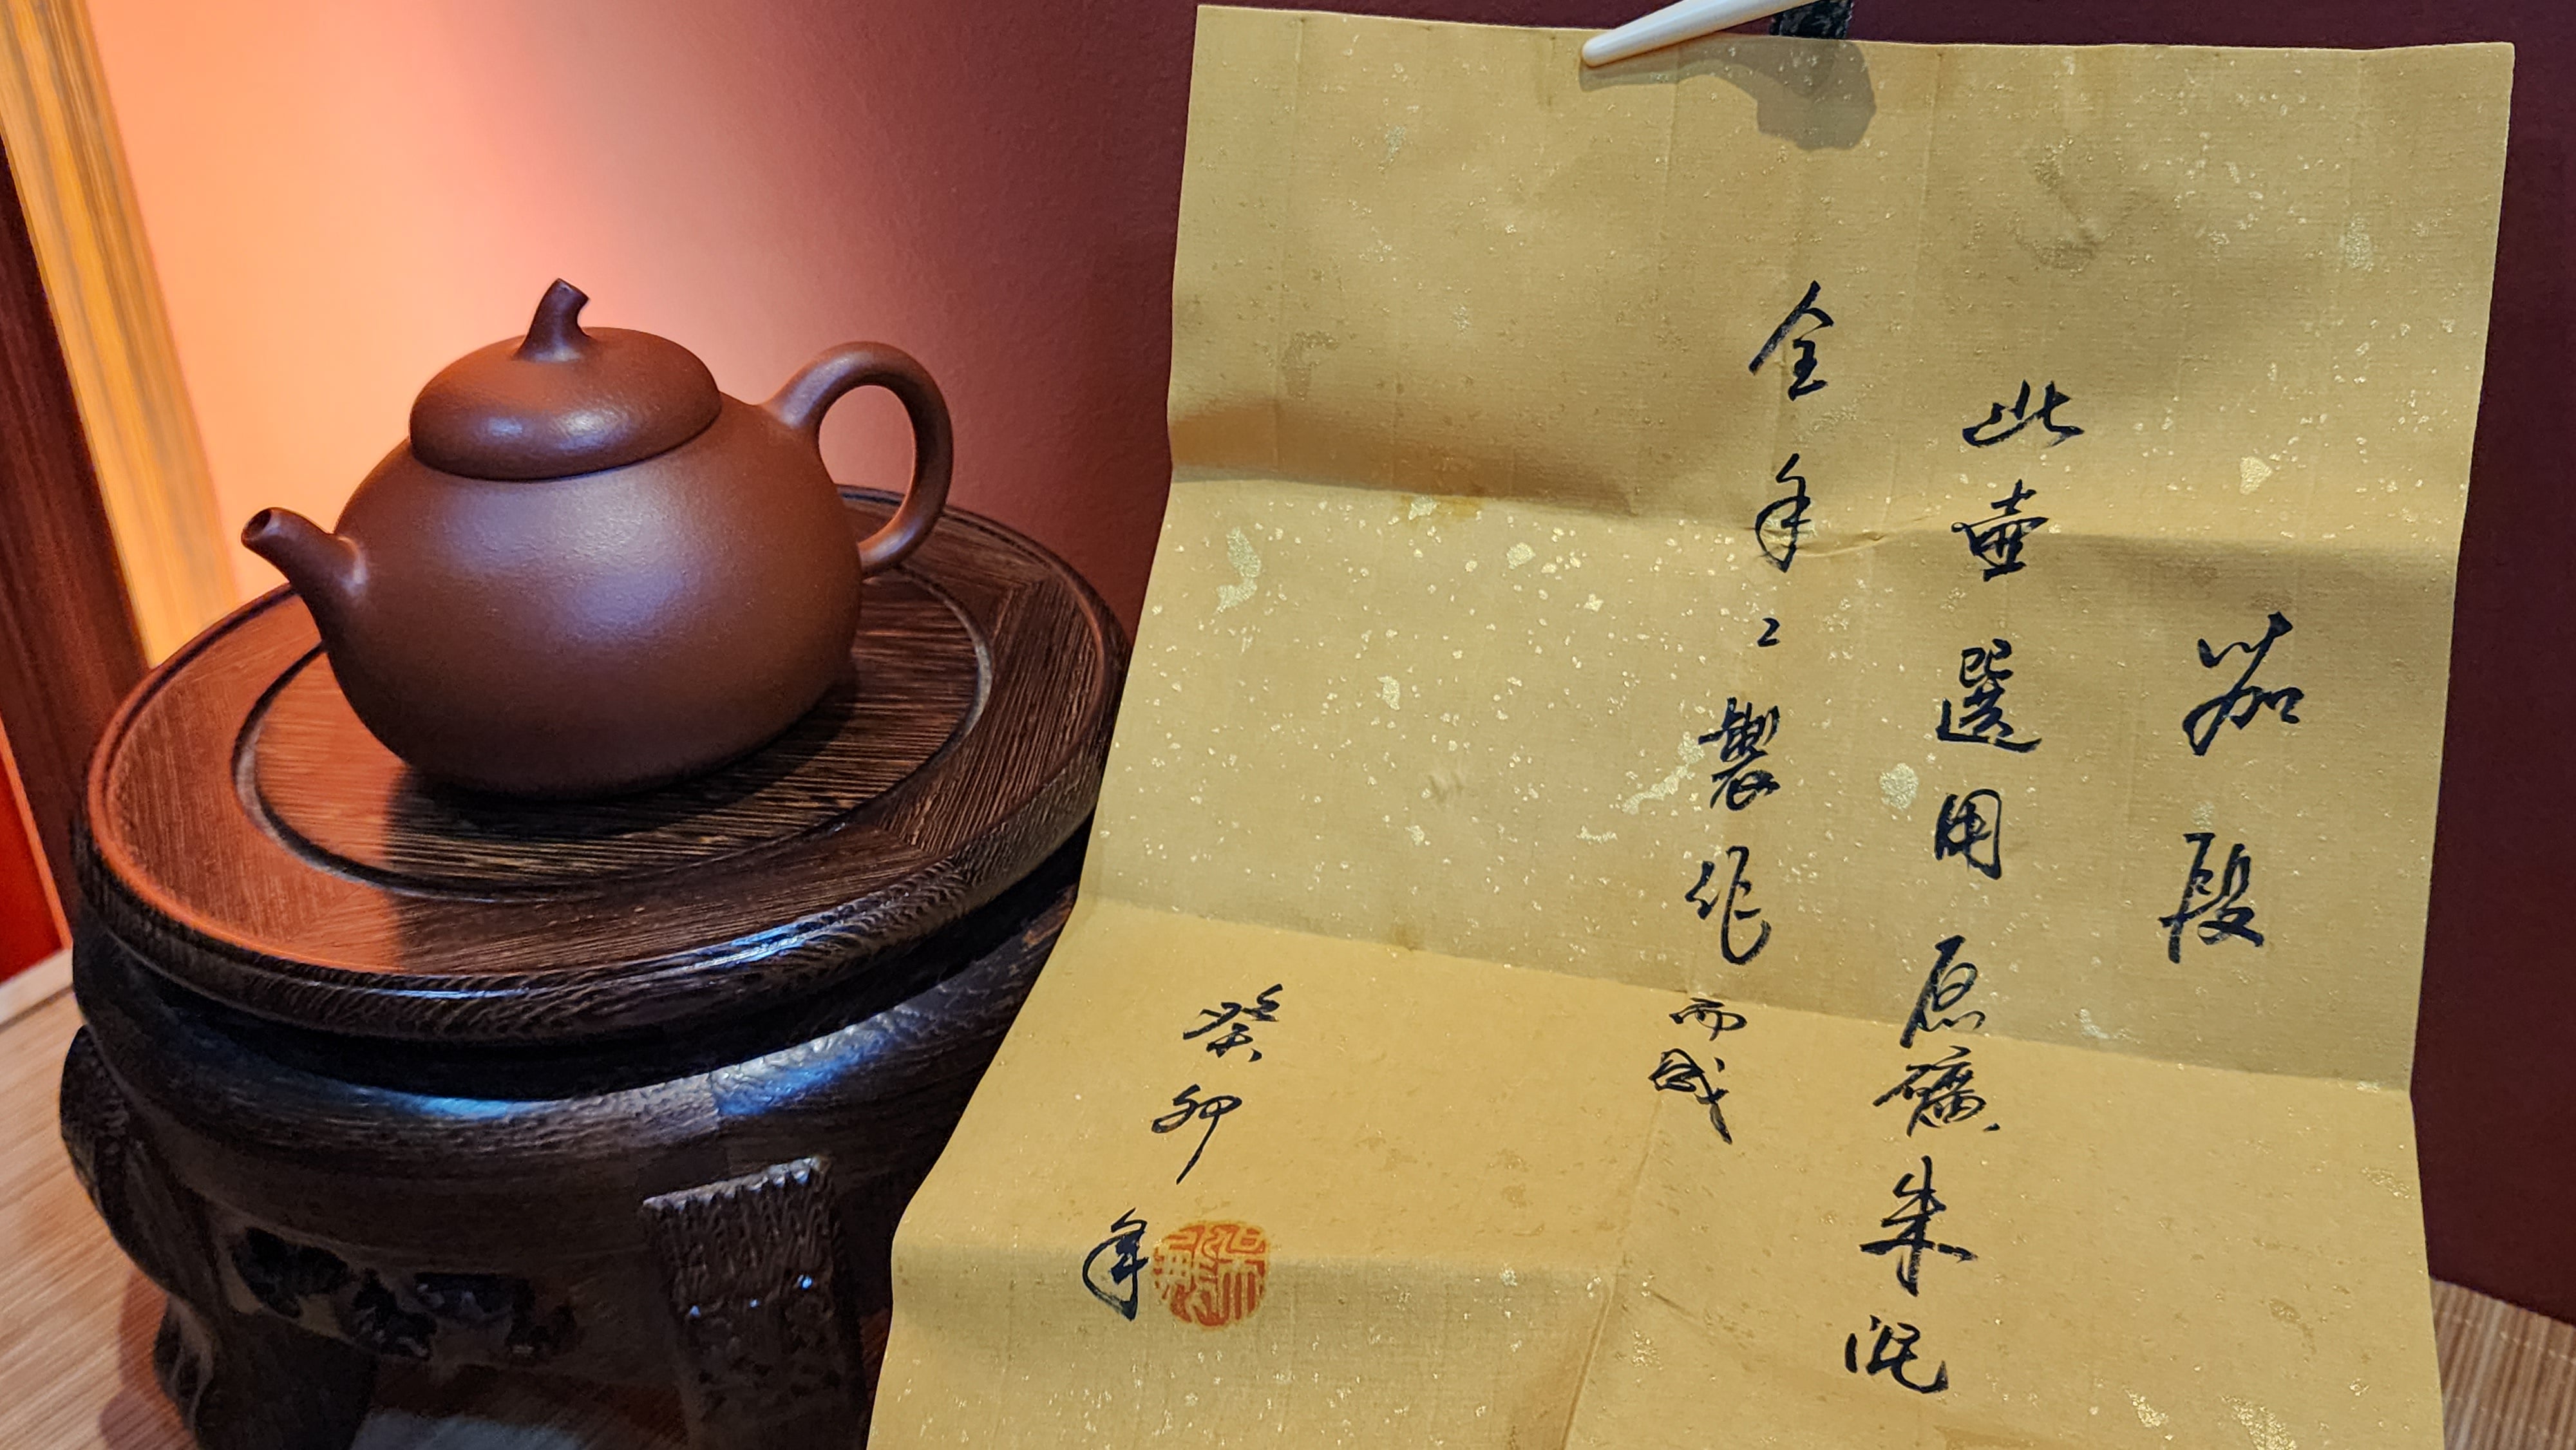 茄段
此壺選用原礦朱泥
全手工製作而成
癸卯
年